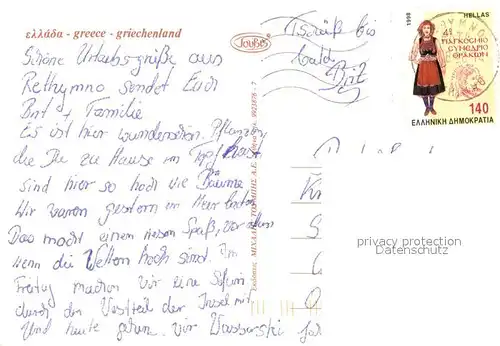 ελλάδα - greece - griechenland
Schöne Urlaubsgrüße aus
Rethymno sendet Euch
Brit + Familie
Es ist hier wunderschön. Pflanzen,
die Du zu Hause im Topf hast
sind hier so hoch wie Bäume.
Wir waren gestern im Meer baden.
Das macht einen riesen Spaß, vor allem
wenn die Wellen hoch sind. Im
Freitag machen wir eine Safari
durch den Westteil der Insel mit
Und heute gehen wir Wasserski
Tschüß bis
bald
Brit
ΤουβΒς
Εκδόσεις ΜΙΧΑΛΗΣ ΤΟΥΜΠΗΣ Α.Ε.
1998
HELLAS
4ο
ΠΑΓΚΟΣΜΙΟ
ΣΥΝΕΔΡΙΟ
ΘΡΑΚΩΝ
140
ΕΛΛΗΝΙΚΗ ΔΗΜΟΚΡΑΤΙΑ
privacy protection
Datenschutz